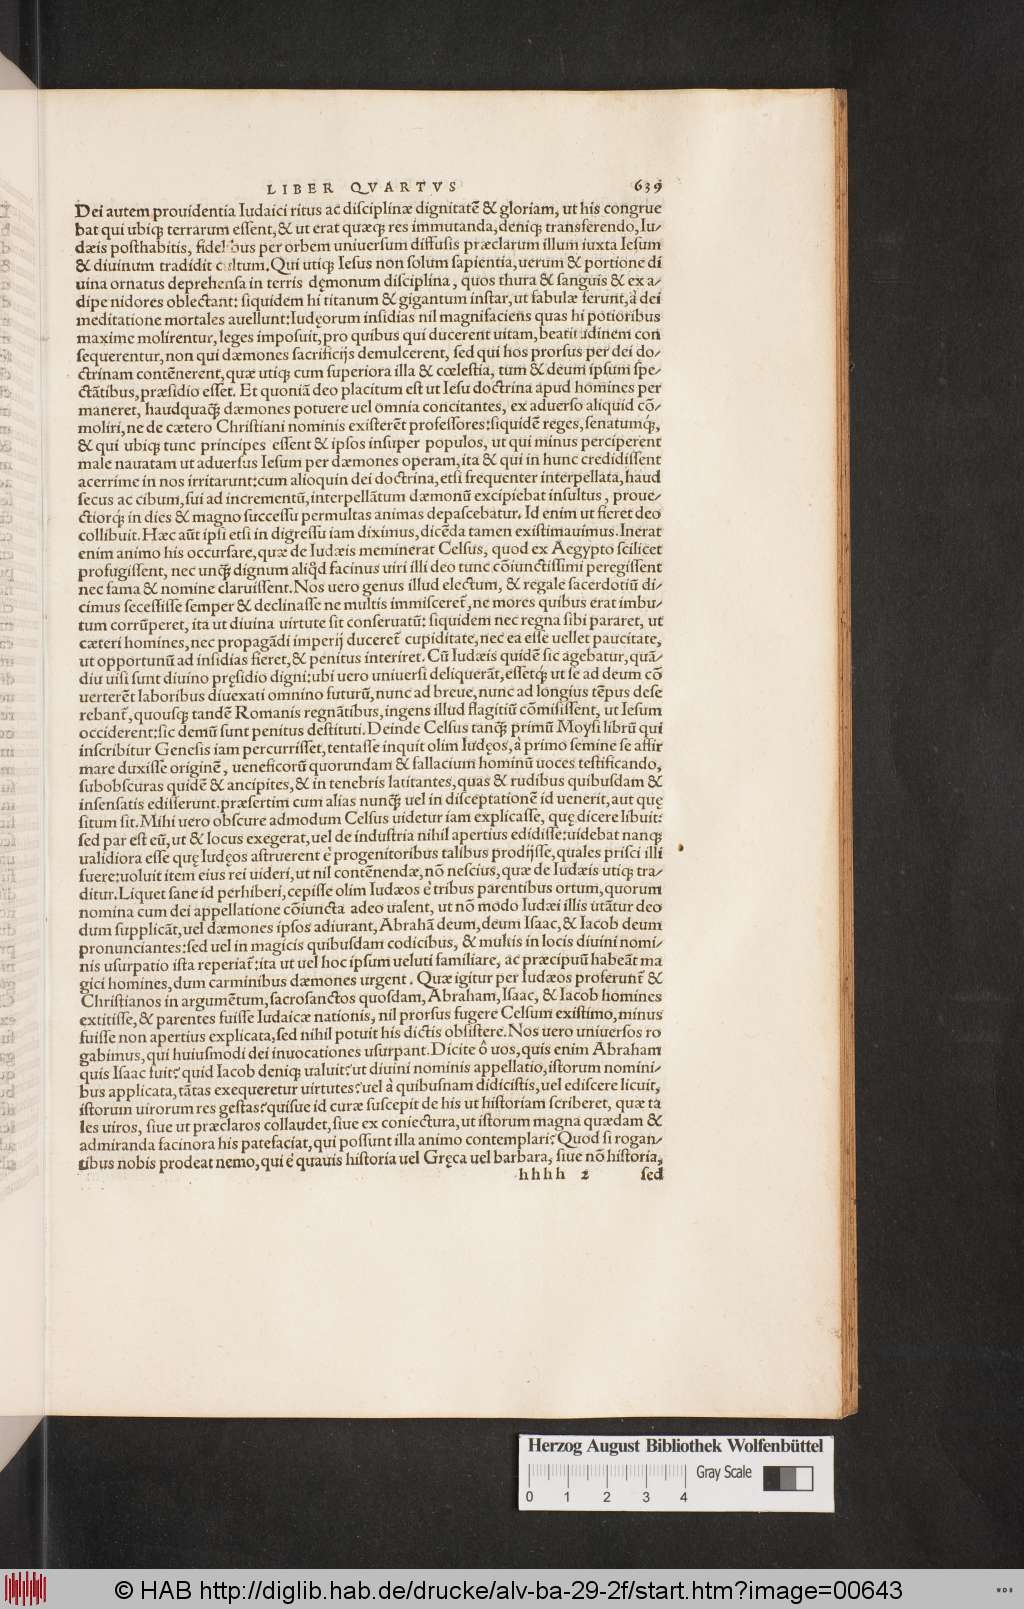 LIBER QVARTVS 639
Dei autem prouidentia Iudaici ritus ac diſciplinæ dignitatē & gloriam, ut his congrue
bat qui ubiqꝫ terrarum eſſent,& ut erat quæqꝫ res immutanda,deniqꝫ transferendo,Iu-
dæis poſthabitis, fidelibus per orbem uniuerſum diffuſis præclarum illum iuxta Ieſum
& diuinum tradidit cultum.Qui utiqꝫ Ieſus non ſolum ſapientia,uerum & portione di
uina ornatus deprehenſa in terris dęmonum diſciplina, quos thura & ſanguis & ex a-
dipe nidores oblectant: ſiquidem hi titanum & gigantum inſtar,ut fabulæ ferunt,à dei
meditatione mortales auellunt:Iudęorum inſidias nil magnifaciens quas hi potioribus
maxime molirentur,leges impoſuit,pro quibus qui ducerent uitam,beatitudinem con
ſequerentur,non qui dæmones ſacrificijs demulcerent, ſed qui hos prorſus per dei do-
ctrinam contēnerent,quæ utiqꝫ cum ſuperiora illa & cœleſtia, tum & deum ipſum ſpe-
ctātibus,præſidio eſſet. Et quoniā deo placitum eſt ut Ieſu doctrina apud homines per
maneret, haudquaqꝫ̄ dæmones potuere uel omnia concitantes, ex aduerſo aliquid cō-
moliri,ne de cætero Chriſtiani nominis exiſterēt profeſſores:ſiquidē reges,ſenatumqꝫ́,
& qui ubiqꝫ tunc principes eſſent & ipſos inſuper populos, ut qui minus perciperent
male nauatam ut aduerſus Ieſum per dæmones operam,ita & qui in hunc credidiſſent
acerrime in nos irritarunt:cum alioquin dei doctrina,etſi frequenter interpellata,haud
ſecus ac cibum,ſui ad incrementū,interpellātum dæmonū excipiebat inſultus, proue-
ctiorqꝫ́ in dies & magno ſucceſſu permultas animas depaſcebatur. Id enim ut fieret deo
collibuit. Hæc aūt ipſi etſi in digreſſu iam diximus,dicēda tamen exiſtimauimus.Inerat
enim animo his occurſare,quæ de Iudæis meminerat Celſus, quod ex Aegypto ſcilicet
profugiſſent, nec unqꝫ̄ dignum aliq̇d facinus uiri illi deo tunc cōiunctiſſimi peregiſſent
nec fama & nomine claruiſſent.Nos uero genus illud electum, & regale ſacerdotiū di-
cimus ſeceſſiſſe ſemper & declinaſſe ne multis immiſceret̄,ne mores quibus erat imbu-
tum corrūperet, ita ut diuina uirtute ſit conſeruatū: ſiquidem nec regna ſibi pararet, ut
cæteri homines,nec propagādi imperij duceret̄ cupiditate,nec ea eſſe uellet paucitate,
ut opportunū ad inſidias fieret,& penitus interiret. Cū Iudæis quidē ſic agebatur,quā-
diu uiſi ſunt diuino pręſidio digni:ubi uero uniuerſi deliquerāt,eſſetqꝫ́ ut ſe ad deum cō
uerterēt laboribus diuexati omnino futurū,nunc ad breue,nunc ad longius tēpus deſe
rebant̄,quouſqꝫ tandē Romanis regnātibus,ingens illud flagitiū cōmiſiſſent, ut Ieſum
occiderent:ſic demū ſunt penitus deſtituti.Deinde Celſus tanqꝫ̄ primū Moyſi librū qui
inſcribitur Geneſis iam percurriſſet,tentaſſe inquit olim Iudęos,à primo ſemine ſe affir
mare duxiſſe originē, ueneficorū quorundam & fallacium hominū uoces teſtificando,
ſubobſcuras quidē & ancipites,& in tenebris latitantes,quas & rudibus quibuſdam &
inſenſatis ediſſerunt.præſertim cum alias nunqꝫ̄ uel in diſceptationē id uenerit,aut quę
ſitum ſit.Mihi uero obſcure admodum Celſus uidetur iam explicaſſe, quę dicere libuit:
ſed par eſt eū,ut & locus exegerat,uel de induſtria nihil apertius edidiſſe:uidebat nanqꝫ
ualidiora eſſe quę Iudęos aſtruerent è progenitoribus talibus prodijſſe,quales priſci illi
fuere:uoluit item eius rei uideri,ut nil contēnendæ,nō neſcius,quæ de Iudæis utiqꝫ tra-
ditur.Liquet ſane id perhiberi,cepiſſe olim Iudæos è tribus parentibus ortum,quorum
nomina cum dei appellatione cōiuncta adeo ualent, ut nō modo Iudæi illis utātur deo
dum ſupplicāt,uel dæmones ipſos adiurant,Abrahā deum,deum Iſaac,& Iacob deum
pronunciantes:ſed uel in magicis quibuſdam codicibus, & multis in locis diuini nomi-
nis uſurpatio iſta reperiat̄:ita ut uel hoc ipſum ueluti familiare, ac præcipuū habeāt ma
gici homines,dum carminibus dæmones urgent. Quæ igitur per Iudæos proferunt̄ &
Chriſtianos in argumētum,ſacroſanctos quoſdam,Abraham,Iſaac, & Iacob homines
extitiſſe,& parentes fuiſſe Iudaicæ nationis, nil prorſus fugere Celſum exiſtimo,minus
fuiſſe non apertius explicata,ſed nihil potuit his dictis obſiſtere.Nos uero uniuerſos ro
gabimus,qui huiuſmodi dei inuocationes uſurpant.Dicite ô uos,quis enim Abraham
quis Iſaac fuit? quid Iacob deniqꝫ ualuit?ut diuini nominis appellatio,iſtorum nomini-
bus applicata,tātas exequeretur uirtutes?uel à quibuſnam didiciſtis,uel ediſcere licuit,
iſtorum uirorum res geſtas?quiſue id curæ ſuſcepit de his ut hiſtoriam ſcriberet, quæ ta
les uiros, ſiue ut præclaros collaudet,ſiue ex coniectura,ut iſtorum magna quædam &
admiranda facinora his patefaciat,qui poſſunt illa animo contemplari? Quod ſi rogan-
tibus nobis prodeat nemo,qui è quauis hiſtoria uel Gręca uel barbara, ſiue nō hiſtoria,
hhhh 2 ſed
Herzog August Bibliothek Wolfenbüttel
Gray Scale
0 1 2 3 4
© HAB http://diglib.hab.de/drucke/alv-ba-29-2f/start.htm?image=00643
WDB